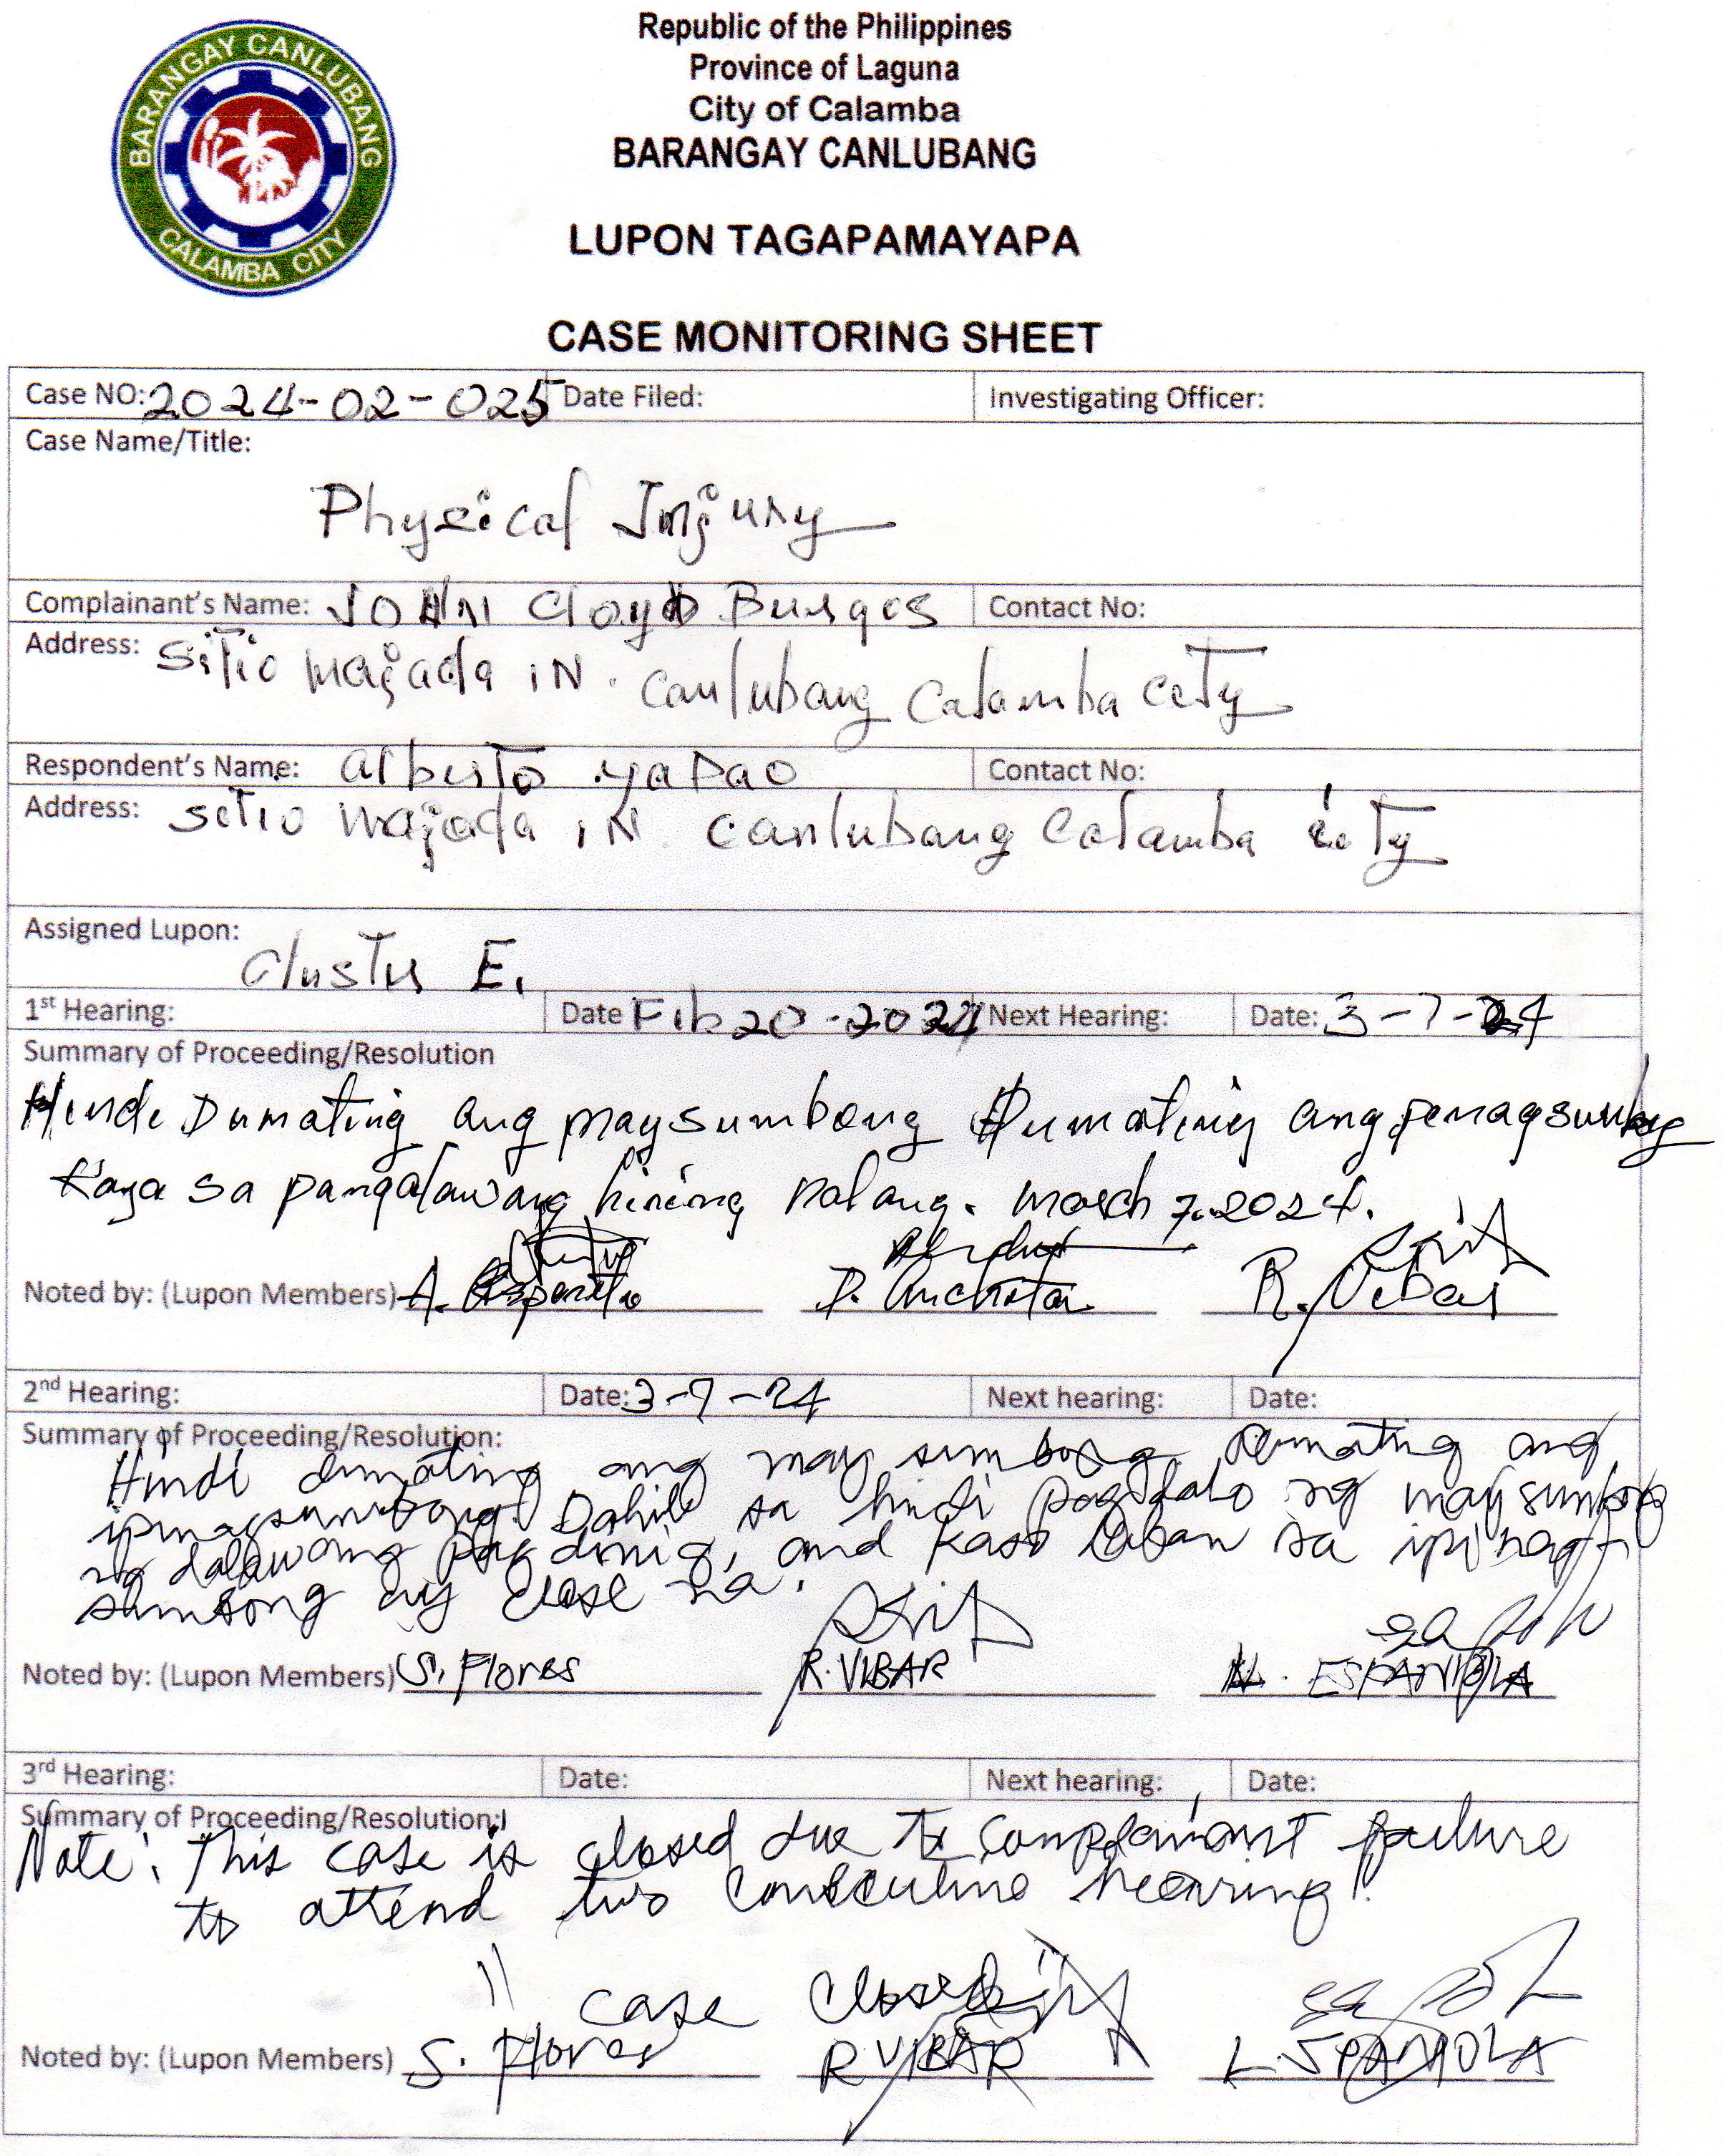 BARANGAY CANLUBANG
CALAMBA CITY
Republic of the Philippines
Province of Laguna
City of Calamba
BARANGAY CANLUBANG
LUPON TAGAPAMAYAPA
CASE MONITORING SHEET
Case NO: 2024-02-025 Date Filed: Investigating Officer:
Case Name/Title:
Physical Injury
Complainant's Name: JOHN Cloyd Burgos Contact No:
Address: Sitio Majada IN. Canlubang Calamba City
Respondent's Name: Alberto yapao Contact No:
Address: Sitio Majada IN Canlubang Calamba City
Assigned Lupon: Cluster E.
1st Hearing: Date Feb 20-2024 Next Hearing: Date: 3-7-24
Summary of Proceeding/Resolution
Hinde Dumating ang maysumbong Dumating ang
Kaya sa pangalawang hiring nalang. March 7.2024.
Noted by: (Lupon Members) A. D. R. Vibar
2nd Hearing: Date: 3-7-24 Next hearing: Date:
Summary of Proceeding/Resolution:
Hindi dumating ang may sumbong. Dumating ang
ipinagsumbong. Dahil sa hindi pagdalo ng maysumbong
ng dalawang pagdinig, and kaso laban sa ipinag-
sumbong ay close na.
Noted by: (Lupon Members) S. Flores R. VIBAR ESPANIOLA
3rd Hearing: Date: Next hearing: Date:
Summary of Proceeding/Resolution:
Note: This case is closed due to complainant failure
to attend two consecutive hearing.
Case Closed
Noted by: (Lupon Members) S. Flores R VIBAR L. SPANIOLA